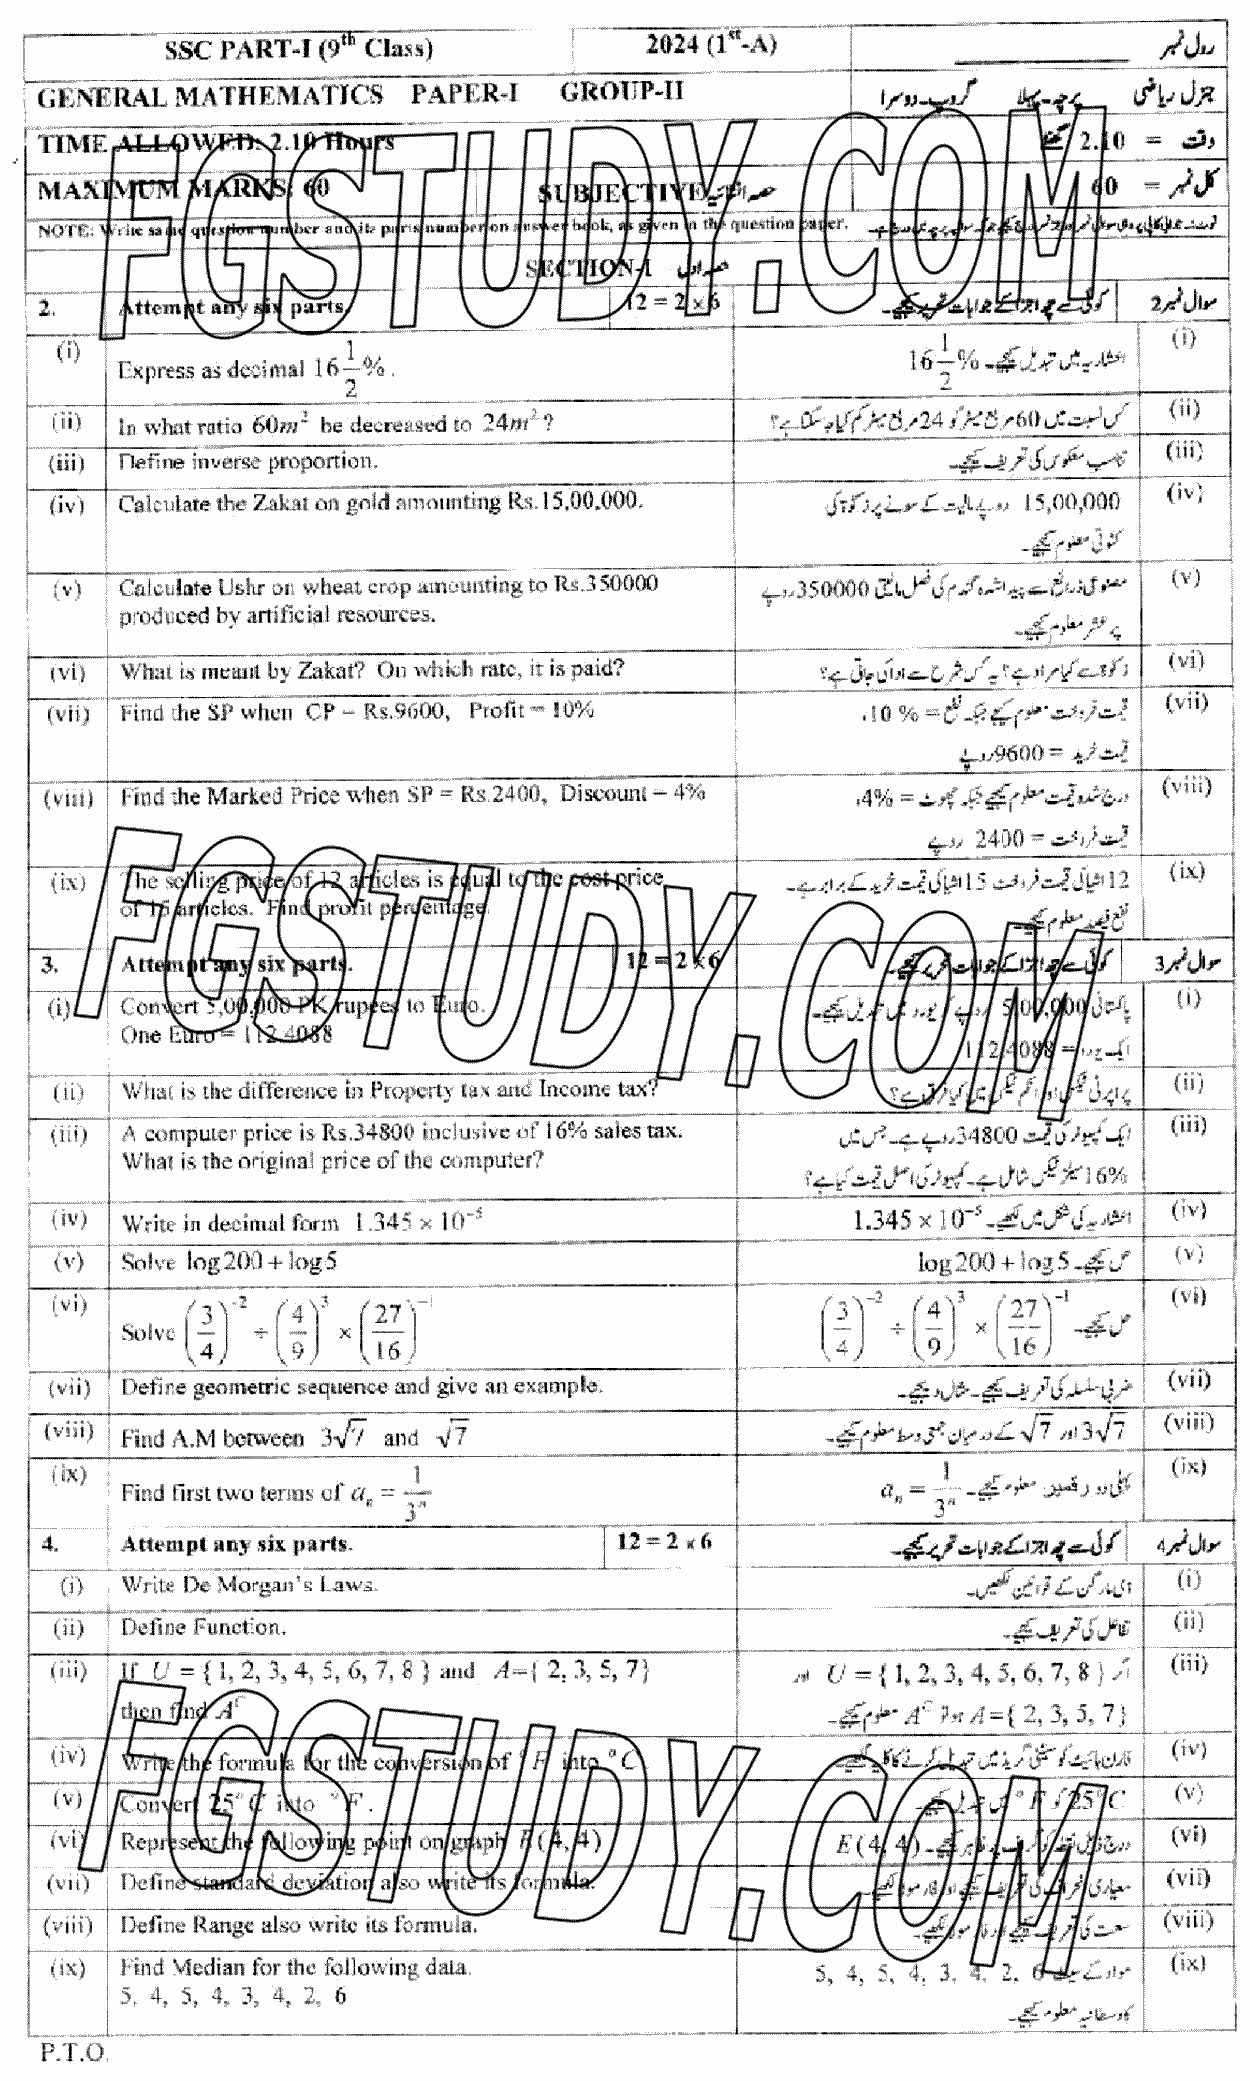 SSC PART-I (9th Class) 2024 (1st-A) رول نمبر
GENERAL MATHEMATICS PAPER-I GROUP-II جنرل ریاضی پرچہ۔پہلا گروپ۔دوسرا
TIME ALLOWED: 2.10 Hours وقت = 2.10 گھنٹے
MAXIMUM MARKS: 60 SUBJECTIVE حصہ انشائیہ کل نمبر = 60
NOTE: Write same question number and its parts number on answer book, as given in the question paper.
SECTION-I حصہ اول
2. Attempt any six parts. 12 = 2 × 6 کوئی سے چھ اجزا کے جوابات تحریر کیجیے۔ سوال نمبر 2
(i) Express as decimal 16 1/2 %. 16 1/2 % اعشاریہ میں تبدیل کیجیے۔ (i)
(ii) In what ratio 60m² be decreased to 24m² ? کس نسبت میں 60 مربع میٹر کو 24 مربع میٹر کم کیا جا سکتا ہے؟ (ii)
(iii) Define inverse proportion. تناسب معکوس کی تعریف کیجیے۔ (iii)
(iv) Calculate the Zakat on gold amounting Rs.15,00,000. 15,00,000 روپے مالیت کے سونے پر زکوٰۃ کی (iv)
کٹوتی معلوم کیجیے۔
(v) Calculate Ushr on wheat crop amounting to Rs.350000 مصنوعی ذرائع سے پیدا شدہ گندم کی فصل مالیتی 350000 روپے (v)
produced by artificial resources. پر عشر معلوم کیجیے۔
(vi) What is meant by Zakat? On which rate, it is paid? زکوٰۃ سے کیا مراد ہے؟ یہ کس شرح سے ادا کی جاتی ہے؟ (vi)
(vii) Find the SP when CP – Rs.9600, Profit = 10% قیمت فروخت معلوم کیجیے جبکہ نفع = % 10، (vii)
قیمت خرید = 9600 روپے
(viii) Find the Marked Price when SP = Rs.2400, Discount – 4% درج شدہ قیمت معلوم کیجیے جبکہ چھوٹ = 4%، (viii)
قیمت فروخت = 2400 روپے
(ix) The selling price of 12 articles is equal to the cost price 12 اشیا کی قیمت فروخت 15 اشیا کی قیمت خرید کے برابر ہے۔ (ix)
of 15 articles. Find profit percentage. نفع فیصد معلوم کیجیے۔
3. Attempt any six parts. 12 = 2 × 6 کوئی سے چھ اجزا کے جوابات تحریر کیجیے۔ سوال نمبر 3
(i) Convert 5,00,000 PK rupees to Euro. پاکستانی 5,00,000 روپے کو یورو میں تبدیل کیجیے۔ (i)
One Euro = 112.4088 ایک یورو = 112.4088
(ii) What is the difference in Property tax and Income tax? پراپرٹی ٹیکس اور انکم ٹیکس میں کیا فرق ہے؟ (ii)
(iii) A computer price is Rs.34800 inclusive of 16% sales tax. ایک کمپیوٹر کی قیمت 34800 روپے ہے۔ جس میں (iii)
What is the original price of the computer? 16% سیلز ٹیکس شامل ہے۔ کمپیوٹر کی اصل قیمت کیا ہے؟
(iv) Write in decimal form 1.345 × 10⁻⁵ اعشاریہ کی شکل میں لکھیے۔ 1.345 × 10⁻⁵ (iv)
(v) Solve log 200 + log 5 حل کیجیے۔ log 200 + log 5 (v)
(vi) Solve (3/4)⁻² ÷ (4/9)³ × (27/16)⁻¹ حل کیجیے۔ (3/4)⁻² ÷ (4/9)³ × (27/16)⁻¹ (vi)
(vii) Define geometric sequence and give an example. ضربی سلسلہ کی تعریف کیجیے۔ مثال دیجیے۔ (vii)
(viii) Find A.M between 3√7 and √7 3√7 اور √7 کے درمیان جمعی وسط معلوم کیجیے۔ (viii)
(ix) Find first two terms of aₙ = 1/3ⁿ پہلی دو رقمیں معلوم کیجیے۔ aₙ = 1/3ⁿ (ix)
4. Attempt any six parts. 12 = 2 × 6 کوئی سے چھ اجزا کے جوابات تحریر کیجیے۔ سوال نمبر 4
(i) Write De Morgan's Laws. ڈی مارگن کے قوانین لکھیں۔ (i)
(ii) Define Function. تفاعل کی تعریف کیجیے۔ (ii)
(iii) If U = { 1, 2, 3, 4, 5, 6, 7, 8 } and A={ 2, 3, 5, 7} اگر U = { 1, 2, 3, 4, 5, 6, 7, 8 } اور (iii)
then find Aᶜ A={ 2, 3, 5, 7} ہو تو Aᶜ معلوم کیجیے۔
(iv) Write the formula for the conversion of °F into °C فارن ہائیٹ کو سینٹی گریڈ میں تبدیل کرنے کا کلیہ لکھیے۔ (iv)
(v) Convert 25°C into °F. 25°C کو °F میں تبدیل کیجیے۔ (v)
(vi) Represent the following point on graph E(4, 4) درج ذیل نقطہ کو گراف پر ظاہر کیجیے۔ E(4, 4) (vi)
(vii) Define standard deviation also write its formula. معیاری انحراف کی تعریف کیجیے اور فارمولا لکھیے۔ (vii)
(viii) Define Range also write its formula. سعت کی تعریف کیجیے اور فارمولا لکھیے۔ (viii)
(ix) Find Median for the following data. مواد کے لیے 5, 4, 5, 4, 3, 4, 2, 6 (ix)
5, 4, 5, 4, 3, 4, 2, 6 کا وسطانیہ معلوم کیجیے۔
P.T.O.
FGSTUDY.COM
FGSTUDY.COM
FGSTUDY.COM